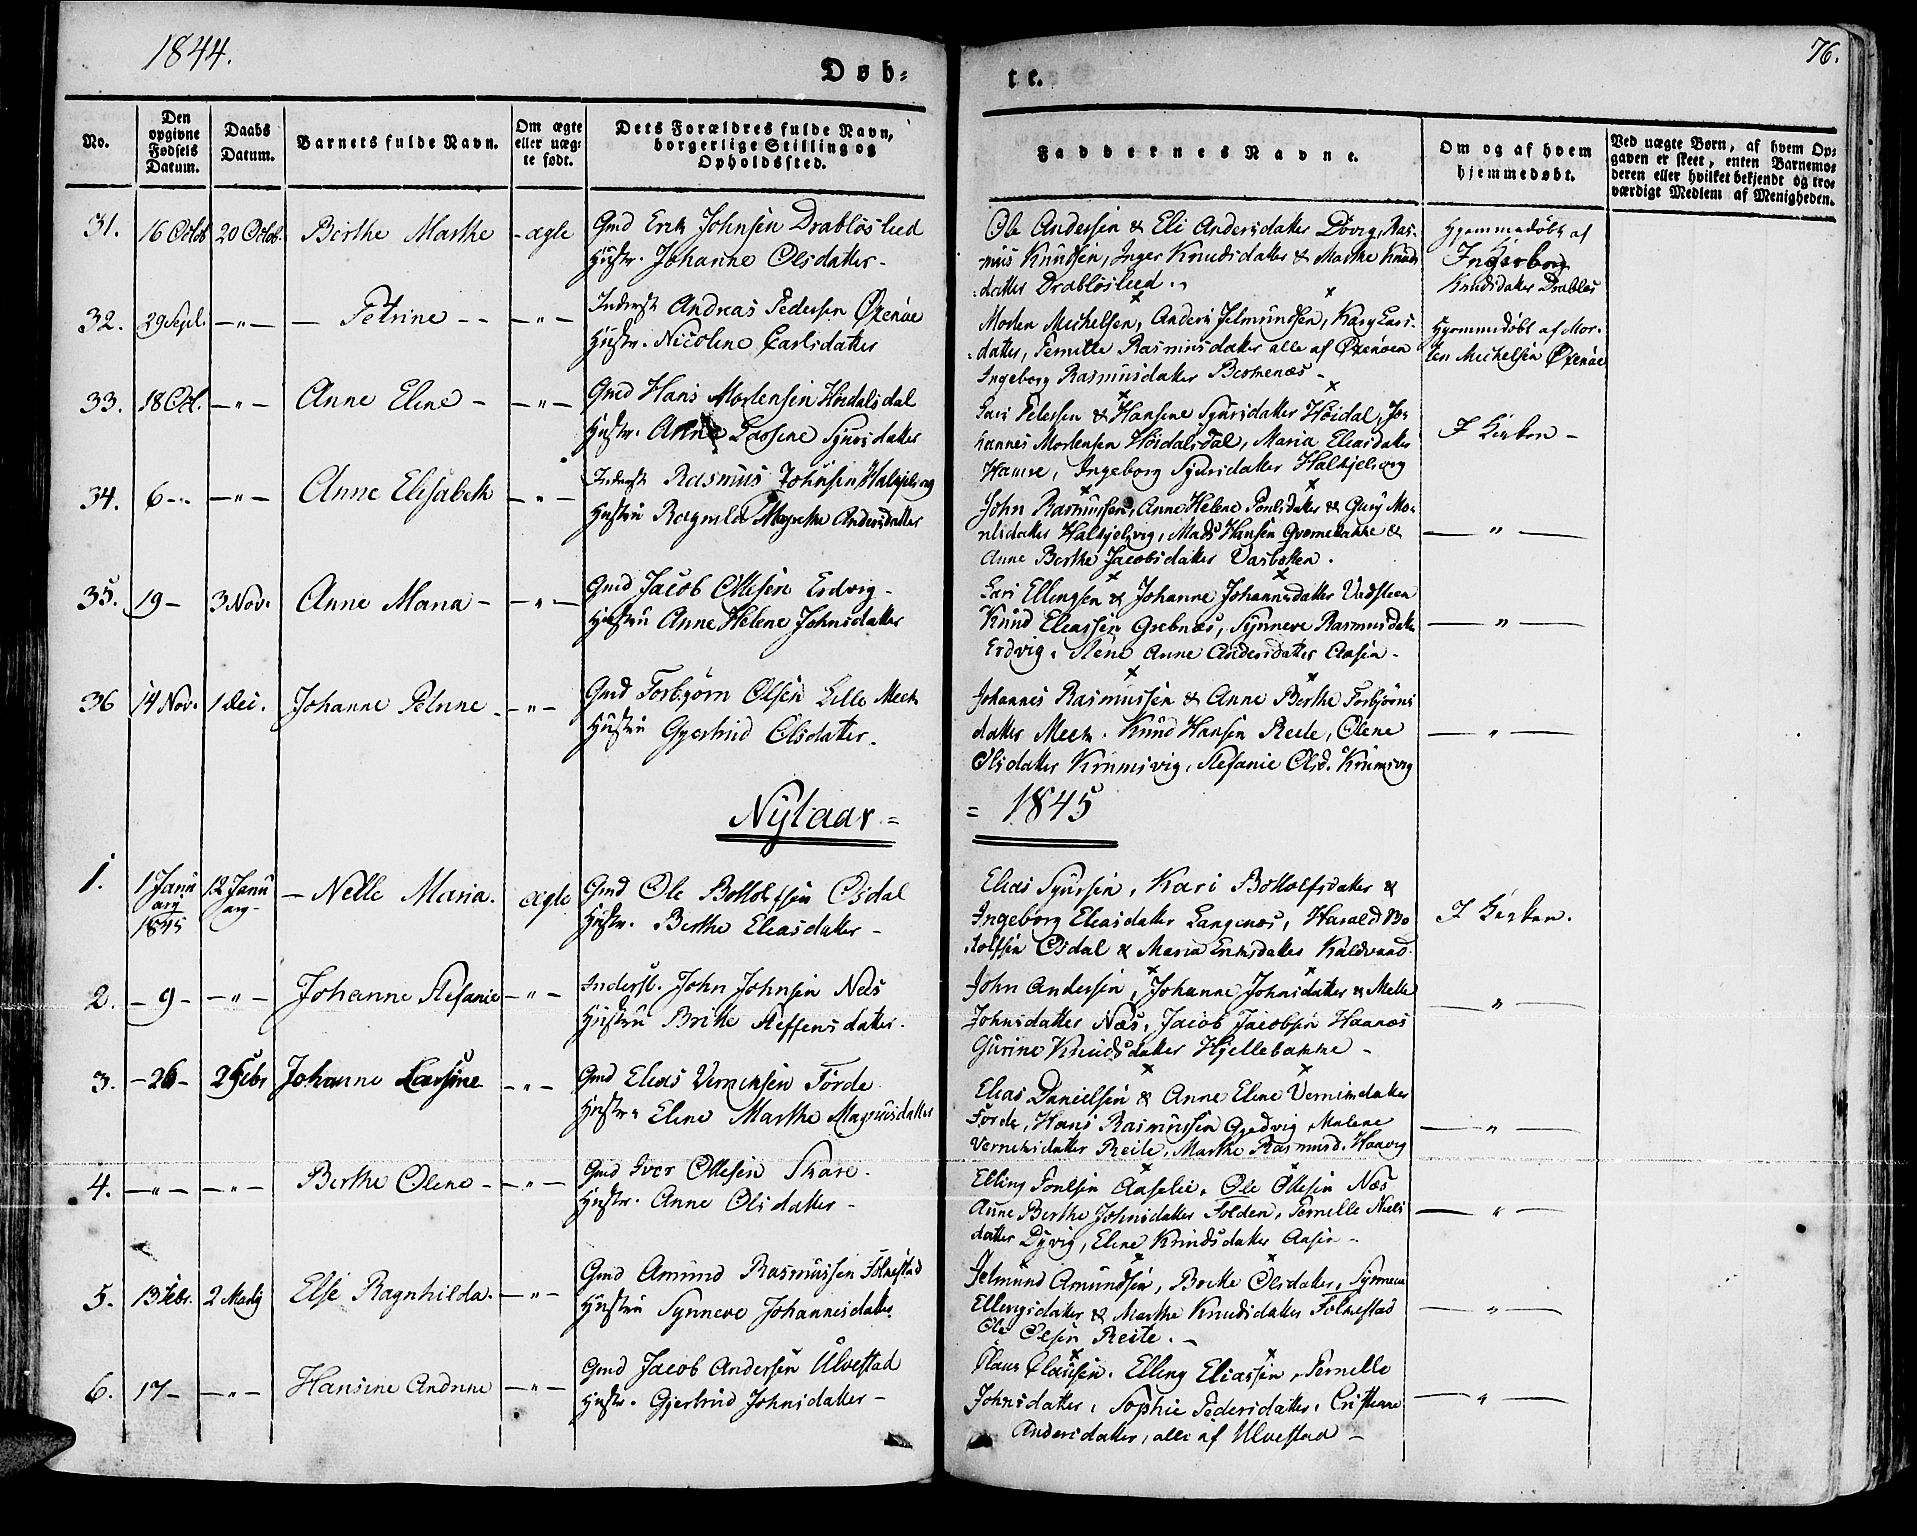 1844.
Døb=
te.
76.
No.
Den opgivne Fødsels Datum.
Daabs Datum.
Barnets fulde Navn.
Om ægte eller uægte født.
Dets Forældres fulde Navn, borgerlige Stilling og Opholdssted.
Faddernes Navne.
Om og af hvem hjemmedøbt.
Ved uægte Børn, af hvem Opgaven er skeet, enten Barnemoderen eller hvilket bekjendt og troværdigt Medlem af Menigheden.
31. 16 Octob 20 Octob. Berthe Marthe - ægte Gmd Erik Johnsen Drabløslied
Hustr. Johanne Olsdatter -
Ole Andersen & Eli Andersdatter Døvig, Ras-
mus Knudsen, Inger Knudsdatter & Marthe Knuds
datter Drabløslied.
Hjemmedøbt af
Ingeborg
Knudsdatter Drabløs
32. 29 Sept. - " - - Petrine - - - " - Inderst Andreas Pedersen Øxenøe
Hustr. Nicoline Carlsdatter
Morten Michelsen, Anders Jelmundsen, Kary Lars-
datter, Pernille Rasmusdatter alle af Øxenøen
Ingeborg Rasmusdatter Bermenæs -
Hjemmedøbt af Mor-
ten Michelsen Øxenøe
33. 18 Oct. - " - Anne Eline - - " - Gmd Hans Mortensen Høidalsdal
Hustr. Anne Lassine Syversdatter
Lars Petersen & Hansine Syversdatter Høidal, Jo-
hannes Mortensen Høidalsdal, Maria Eliasdatter
Havne, Ingeborg Syversdatter Halkjelsvig
I Kirken -
34. 6 - - " - Anne Elisabeth - " - Inderst Rasmus Johnsen Halkjelsvig
Hustru Ragnild Magrethe Andersdatter
John Rasmussen, Anne Helene Poulsdatter & Gury Mo-
nlsdatter Halkjelsvig, Mads Hansen Qvernebakke &
Anne Berthe Jacobsdatter Varbotten.
- " -
35. 19 - 3 Nov. Anne Maria - - " - Gmd Jacob Ottesen Erdvig -
Hustru Anne Helene Johnsdatter
Lars Ellingsen & Johanne Johannesdatter Vadsteen
Knud Eliassen Grebnæs, Synneve Rasmusdatter
Erdvig, Stene Anne Andersdatter Aasen -
- " -
36 14 Nov. 1 Dec. Johanne Petrine - " - Gmd Torbjørn Olsen Lille Meek
Hustru Gjertrud Olsdatter.
Johannes Rasmussen & Anne Berthe Torbjørns
datter Meek. Knud Hansen Reite, Olene
Olsdatter Krumsvig, Stefanie Olsd. Krumsvig
- " -
Nytaar =
= 1845
1. 1 Janu 12 Janu - Nelle Maria. ægte Gmd Ole Bottolfsen Osdal
ary ary -
1845 Hustr. Berthe Eliasdatter -
Elias Syversen, Kari Bottolfsdatter &
Ingeborg Eliasdatter Langenæs, Harald Bo
tolfsen Osdal & Maria Eriksdatter Kaldvaad.
I Kirken.
2. - 9 - - " - Johanne Stefanie - " - Inderst. John Johnsen Næs
Hustru Brithe Steffensdatter.
John Andersen, Johanne Johnsdatter & Mette
Johnsdatter Næs, Jacob Jacobsen Haanæs
Gurine Knudsdatter Hjellebakke -
- " -
3. - 26 - 2 Febr Johanne Larsine - " - Gmd Elias Verniksen Førde
Hustru Eline Marthe Magnusdatter
Elias Danielsen & Anne Eline Verniksdatter
Førde, Hans Rasmussen Gjedvig, Malene
Verniksdatter Reite, Marthe Rasmusd. Haavig
- " -
4. - " - - " - Berthe Olene - - " - Gmd Iver Ottesen Skare.
Hustr. Anne Olsdatter -
Elling Poulsen Aaselie, Ole Ottesen Næs
Anne Berthe Johnsdatter Folden, Pernille Niels
datter Dyvig, Eline Knudsdatter Aasen -
- " -
5. 13 Febr. 2 Marts Else Ragnhilda - " - Gmd Amund Rasmussen Folkestad
Hustru Synneve Johannesdatter
Jelmund Amundsen, Brithe Olsdatter, Synneve
Ellingsdatter & Marthe Knudsdatter Folkestad
Ole Olsen Reite. -
- " -
6. 17 - - " - Hansine Andrine - " - Gmd Jacob Andersen Ulvestad
Hustr. Gjertrud Johnsdatter -
Claus Clausen, Elling Eliassen, Pernille
Johnsdatter, Sophie Pedersdatter, Cristiane
Andersdatter, alle af Ulvestad -
- " -